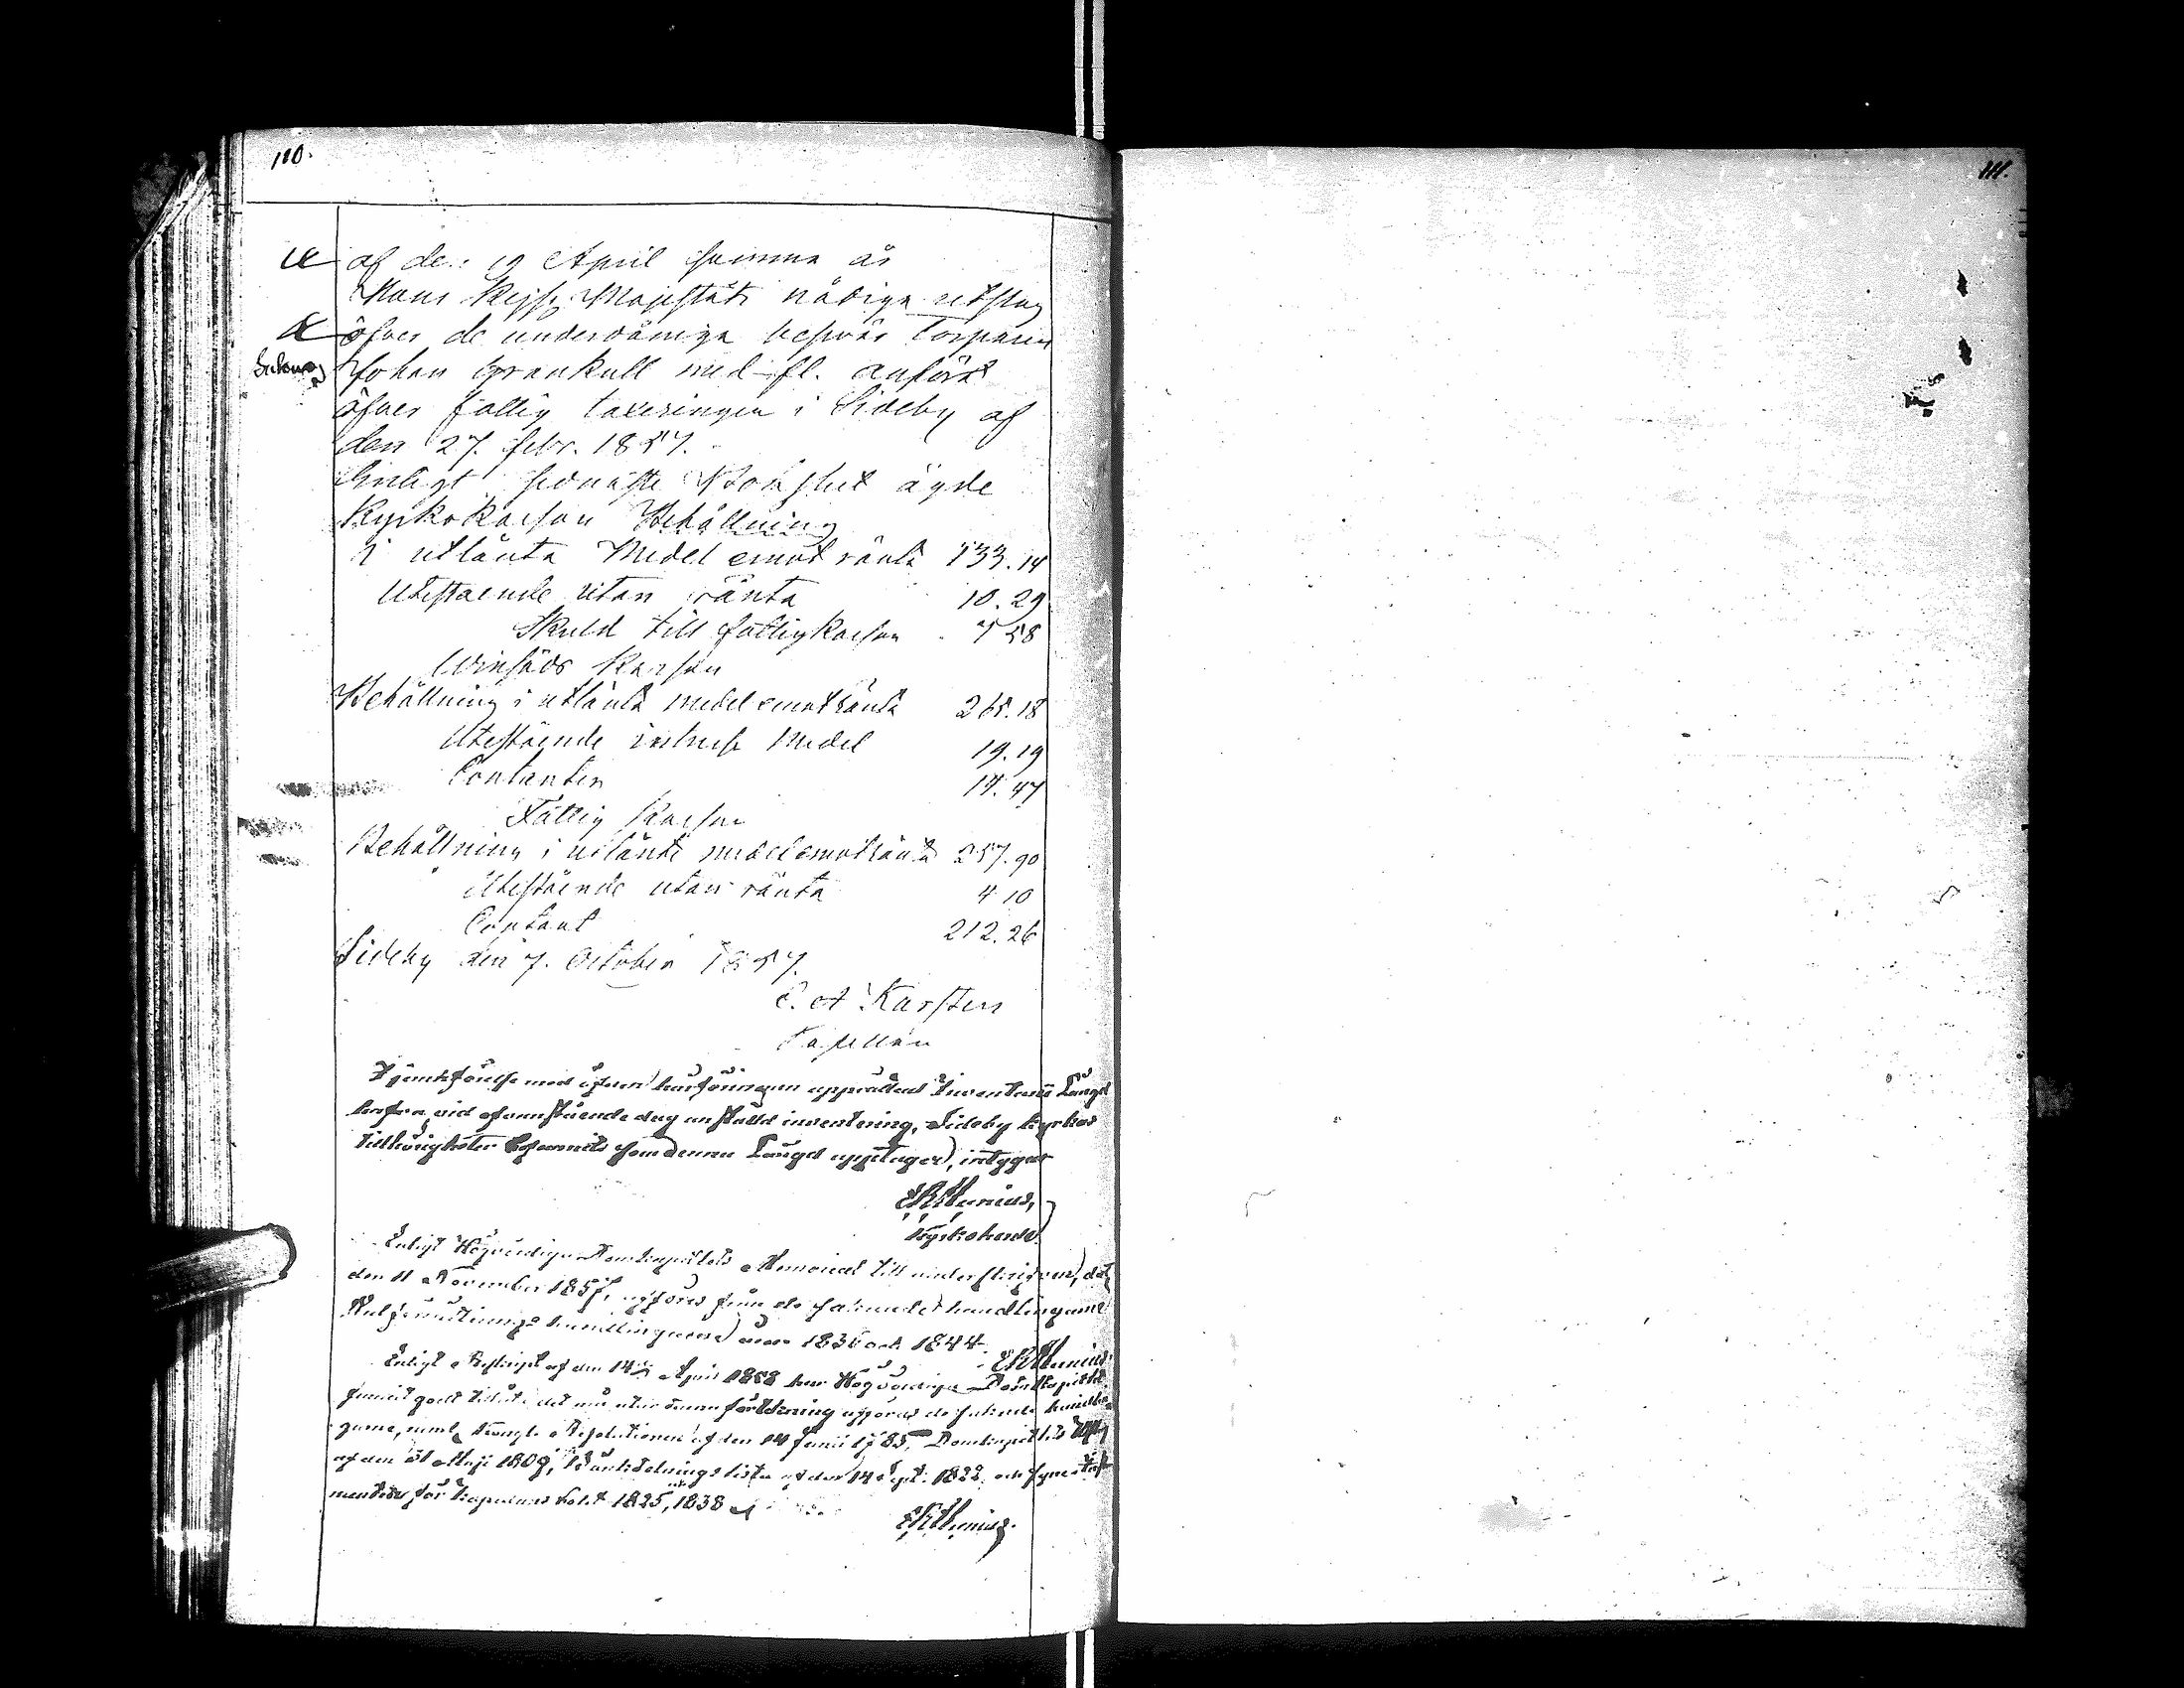 110.
111.
af den 19 April samma år
Hans Kejs. Majestäts nådiga utslag
öfver de underdåniga besvär Torparen
Johan Grankull med fl. anfört
öfver fattig taxeringen i Sideby af
den 27. febr. 1857.
Enligt sednaste Bokslut ägde
KyrkoKassan Behållning
i utlånta Medel emot ränta 133.14
Utestående utan ränta 10.29
Skuld till fattigKassan 7 58
Kassan
Behållning i utlånta medel emot ränta 265.18
Utestående Medel 19.19
Contanter 14.47
Fattig Kassan
Behållning i utlånte medel emot ränta 257.90
Utestående utan ränta 4 10
Contant 212.26
Sideby den 7. October 1857.
C. A Karsten
Kapellan
I jemförelse med öfver upprättad Inventarii Längd
vid ofvanstående dag anställd inventering, Sideby kyrkas
Tillhörigheter som denna Längd upptager, intygar
Kyrkoherde.
Enligt Högvördiga Domkapitlets Memorial till underskrifven, dat.
den 11 November 1857, afföres från de saknade handlingarne
handlingarne åren 1836 och 1844.
Enligt Reskript af den 14 April 1858 har Högvördiga Domkapitlet
funnit godt tillåta det må utan annan förklaring afföras de saknade handlin-
garne, neml. Kongl. Resolutionen af den 14 Junii 1785, Domkapitlets
af den 31 Maji 1809, af den 14 Sept. 1822, och
för Kapellans Bolet 1825, 1838